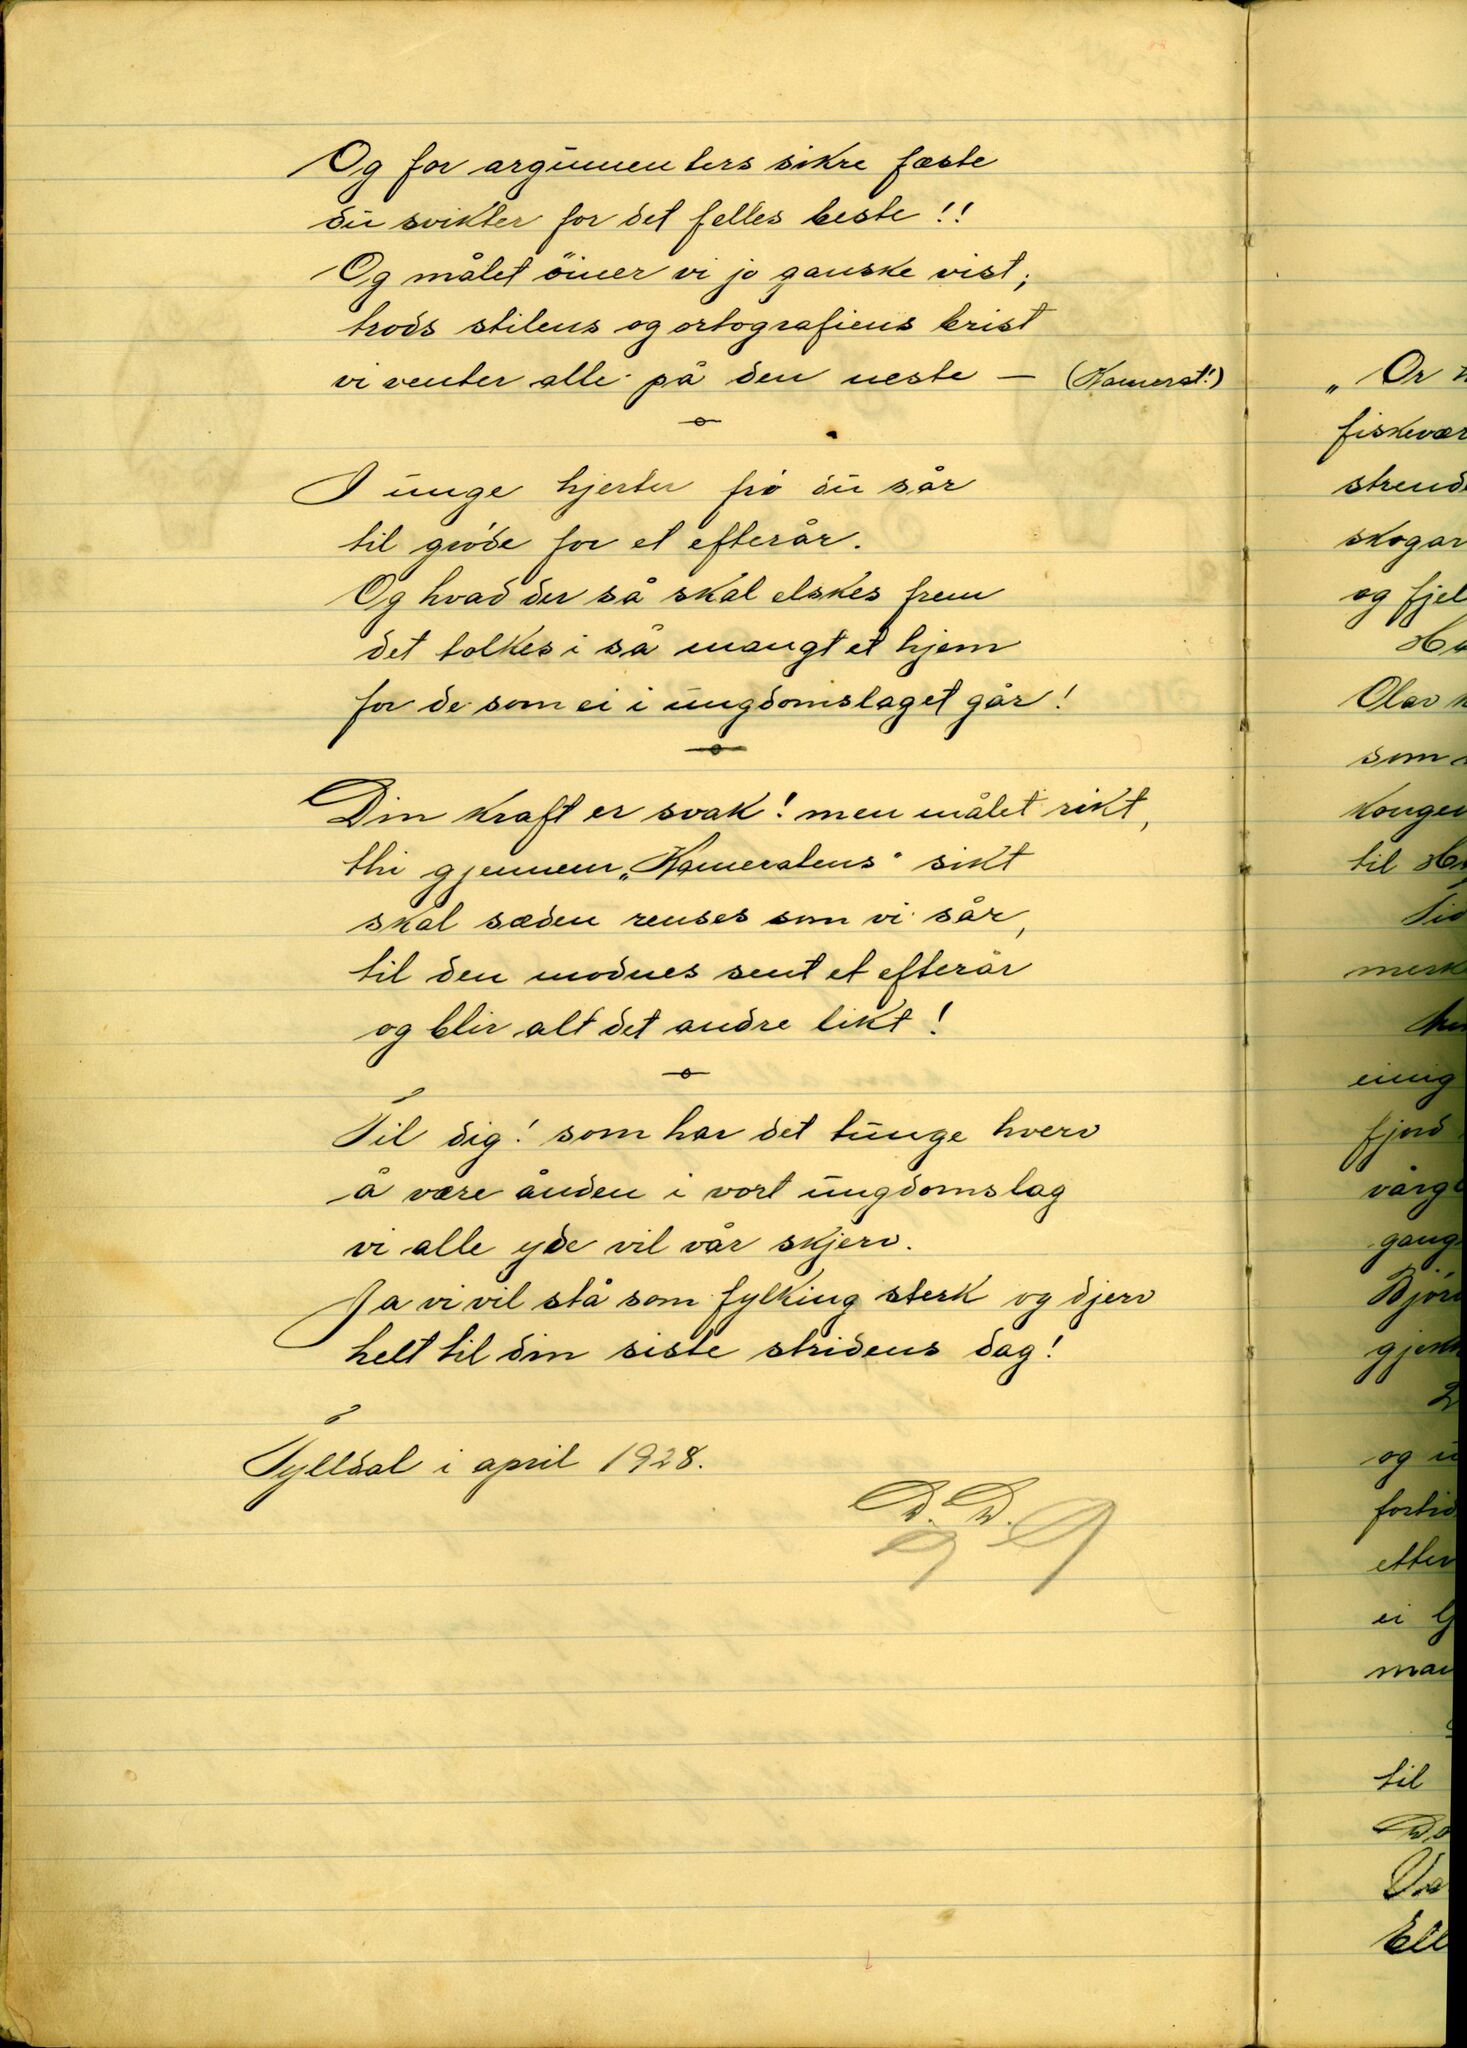 Og for argumenters sikre fæste
du svikter for det felles beste!!
Og målet öiner vi jo ganske vist;
trods stilens og ortografiens brist
vi venter alle på den neste — (Kamerat!)
I unge hjerter frö du sår
til gröde for et efterår.
Og hvad der så skal elskes frem
det tolkes i så mangt et hjem
for de som ei i ungdomslaget går!
Din kraft er svak! men målet rikt,
thi gjennem „Kameratens" sikt
skal sæden renses som vi sår,
til den modnes sent et efterår
og blir alt det andre likt!
Til dig! som har det tunge hverv
å være ånden i vort ungdomslag
vi alle yde vil vår skjerv.
Ja vi vil stå som fylking sterk og djerv
helt til din siste stridens dag!
Tylldal i april 1928.
D. D.
„Or
fiskevær
strend
skogar
og fjel
Ha
Olav
som
konge
til
merk
einig
fjord
gang
Bjørn
og
fortid
etter
ei
man
til
Ell